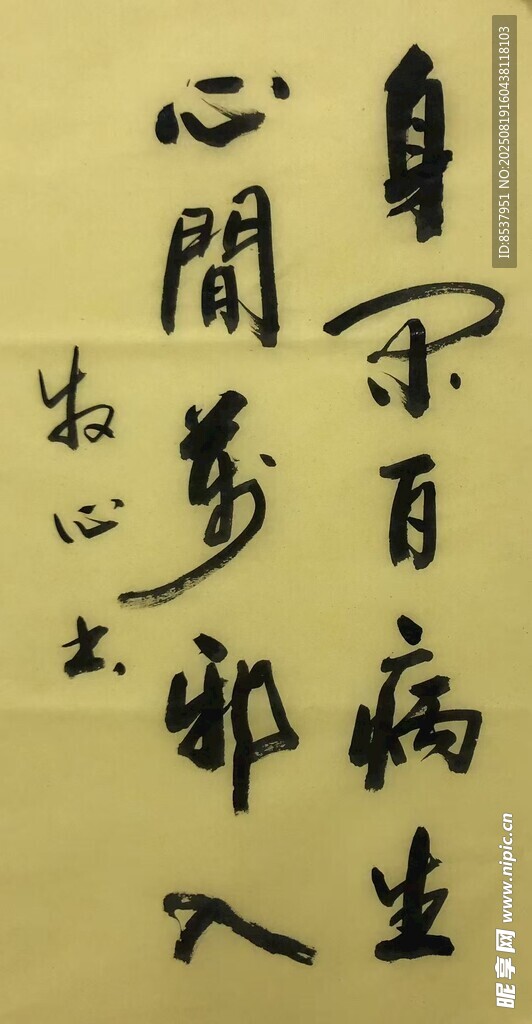 身闲百病生
心閒萬邪入
牧心书
ID:8537951 NO:20250819160438118103
昵享网 www.nipic.cn